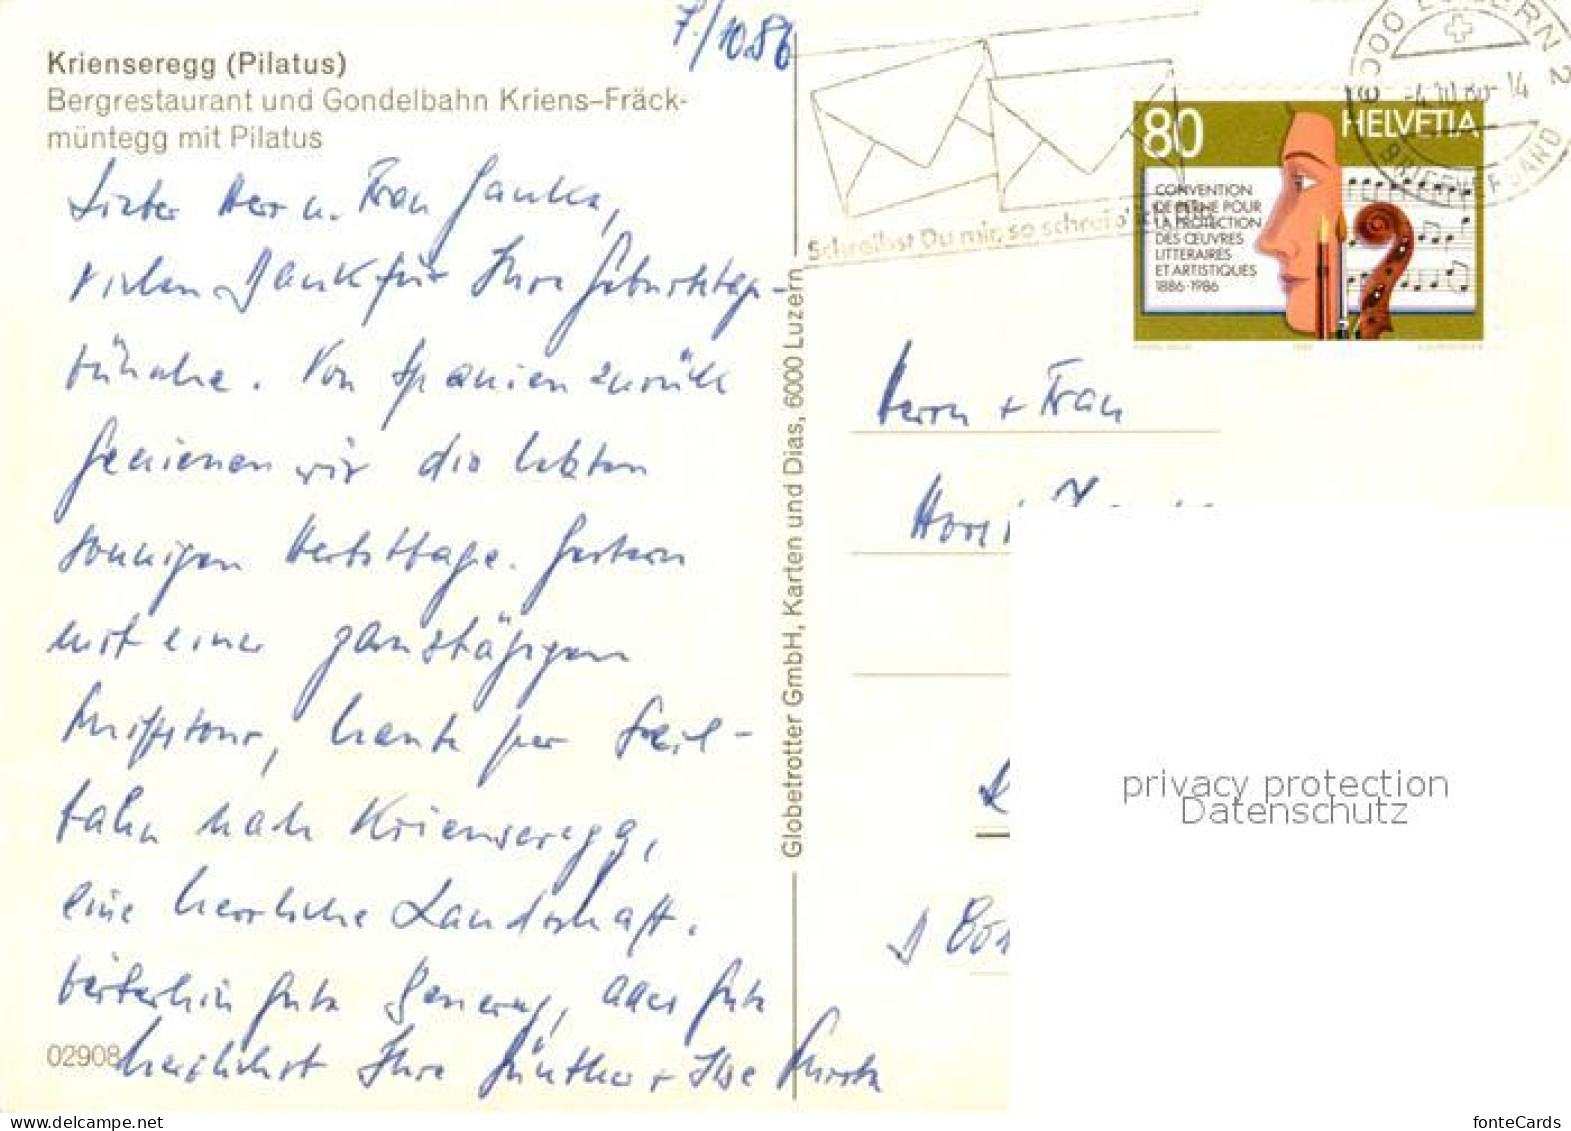 7./10.86
Krienseregg (Pilatus)
Bergrestaurant und Gondelbahn Kriens-Fräck-
müntegg mit Pilatus
Lieber Herr u. Frau
vielen Dank für Ihre Geburtstags-
wünsche. Von Spanien zurück
genießen wir die letzten
sonnigen Herbsttage. Gestern
mit einer ganztägigen
Schiffstour, heute per Seil-
bahn nach Krienseregg,
eine herrliche Landschaft.
Weiterhin gute Genesung, alles Gute
herzlichst Ihre Günther + Ilse
02908
Globetrotter GmbH, Karten und Dias, 6000 Luzern
Schreibst Du mir, so schreib' ich Dir
6000 LUZERN 2
-4.10.86-14
BRIEFVERSAND
80
HELVETIA
CONVENTION
DE BERNE POUR
LA PROTECTION
DES ŒUVRES
LITTERAIRES
ET ARTISTIQUES
1886-1986
Herrn + Frau
Horst
D
privacy protection
Datenschutz
fonteCards